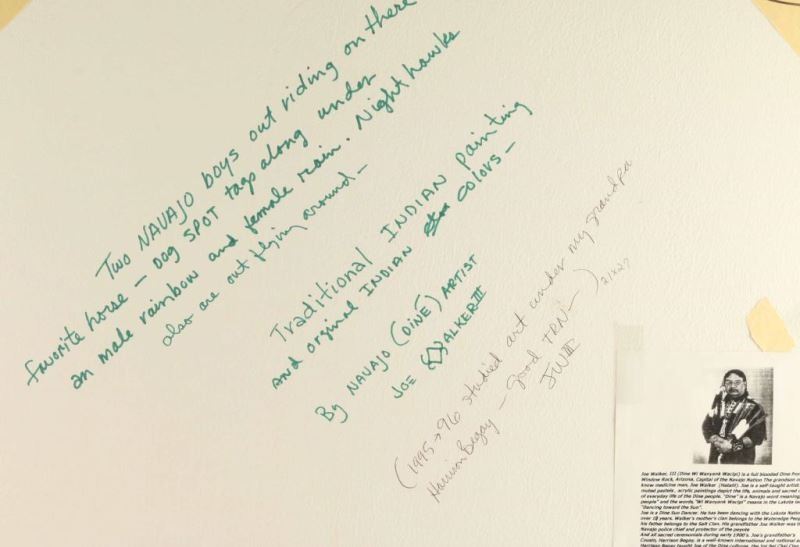 Two NAVAJO boys out riding on there
favorite horse – DOG SPOT tags along under
an male rainbow and female rain. Night hawks
also are out flying around –
Traditional INDIAN painting
and orginal INDIAN colors –
By NAVAJO (DINÉ) ARTIST
JOE WALKER III
(1995 → 96 studied art under my grandpa
Harrison Begay – good TRN – )
JW III
Joe Walker, III (Dine Wi Wanyank Wacipi) is a full blooded Dine from
Window Rock, Arizona, Capital of the Navajo Nation The grandson
know medicine man, Joe Walker (Hatalii). Joe is a self-taught artist
muted pastels, acrylic paintings depict the life, animals and sacred
of everyday life of the Dine people. "Dine" is a Navajo word meaning
people" and the words, "Wi Wanyank Wacipi" means in the Lakota
"Dancing toward the Sun".
Joe is a Dine Sun Dancer. He has been dancing with the Lakota
over 18 years. Walker's mother's clan belongs to the Wateredge
his father belongs to the Salt Clan. His grandfather Joe Walker was
Navajo police chief and protector of the peyote
And all sacred ceremonials during early 1900's. Joe's grandfather's
Cousin, Harrison Begay, is a well-known international and national
Harrison Begay taught Joe of the Dine culture